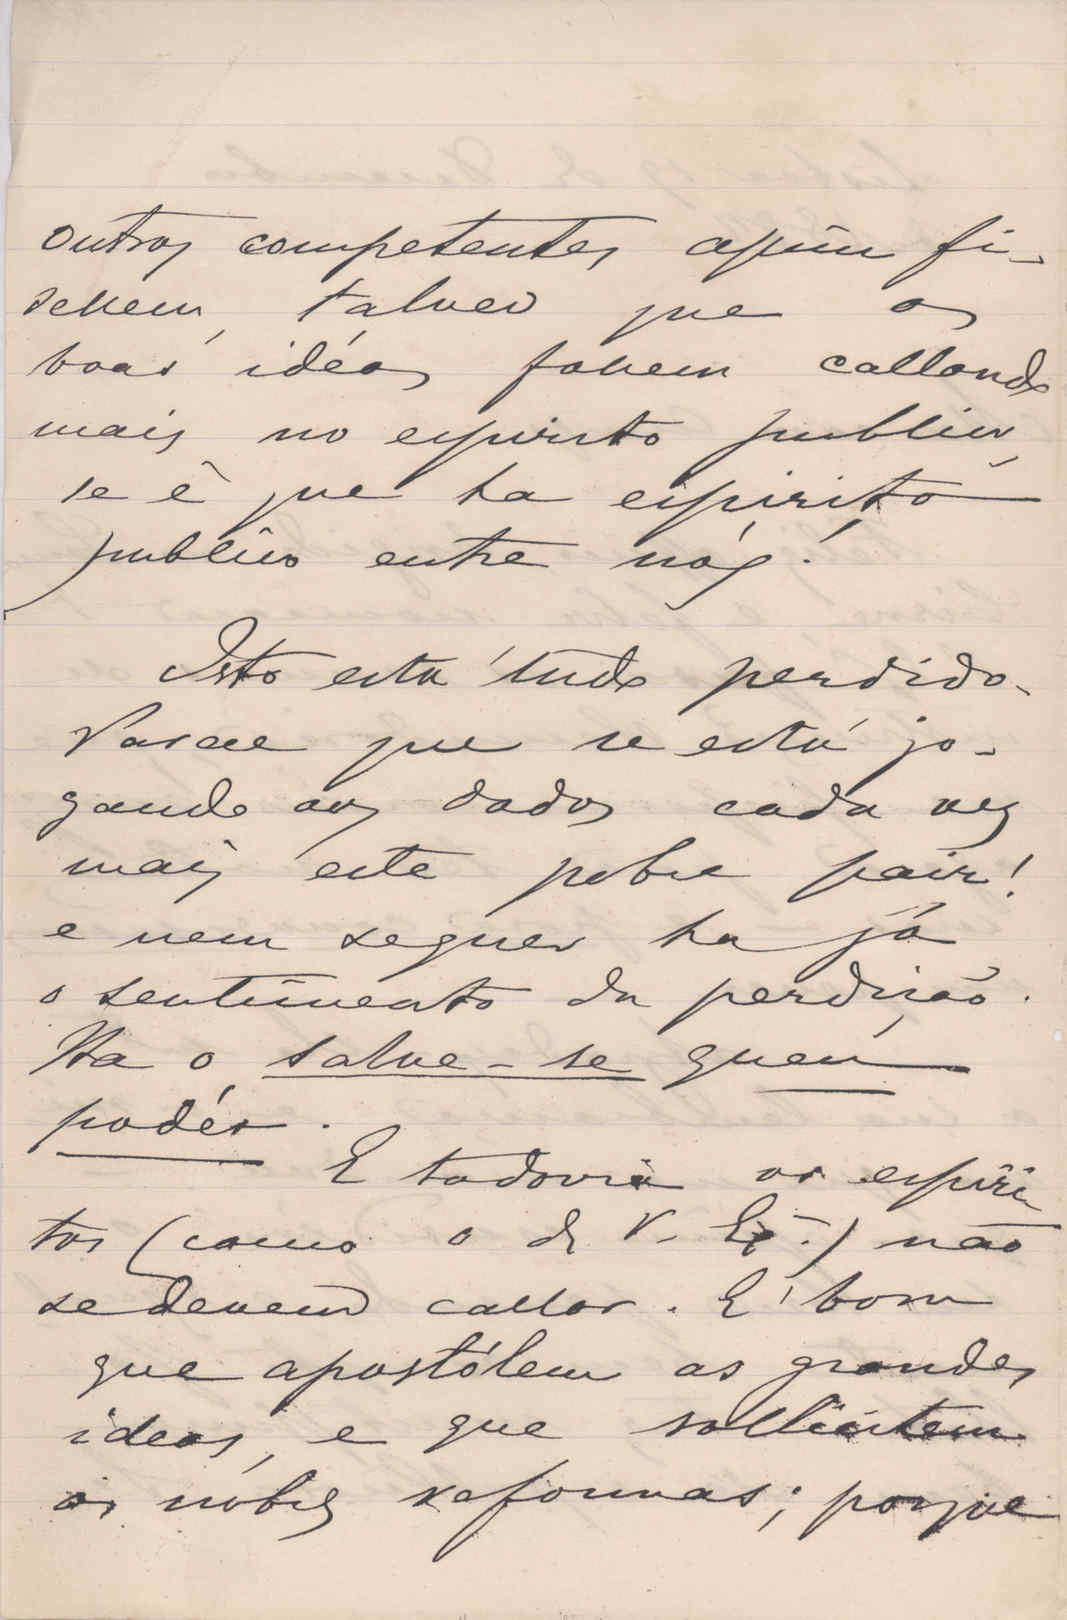 outros competentes assim fi-
sessem, talvez que as
boas idéas fossem callando
mais no espirito publico,
se é que ha espirito
publico entre nós!
Isto está tudo perdido.
Parece que se está jo-
gando aos dados cada vez
mais este pobre paiz!
e nem sequer ha já
o sentimento da perdição.
Ha o salve-se quem
podér.
E todavia os espiri-
tos (como o de V. Exª.) não
se devem callar. É bom
que apostólem as grandes
ideas, e que sollicitem
as nobres reformas; porque